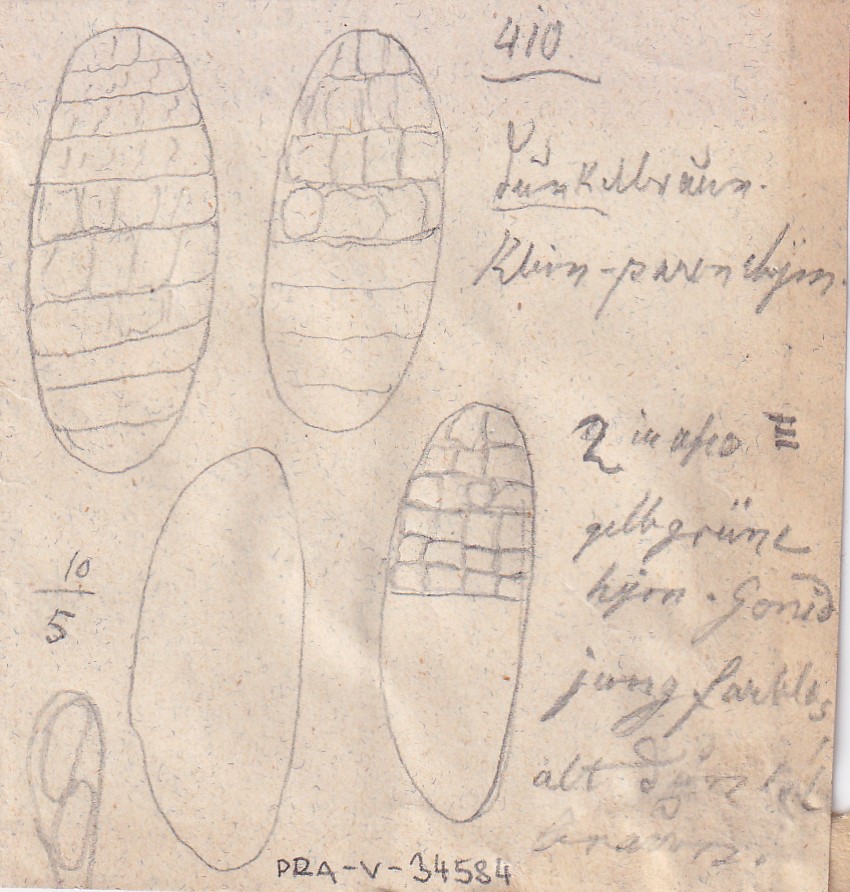 410
dunkelbraun.
Klein-parenchym.
2 in asco
gelbgrüne
hym. Gonid
jung farblos
alt dunkel
braun.
10
5
PRA-V-34584